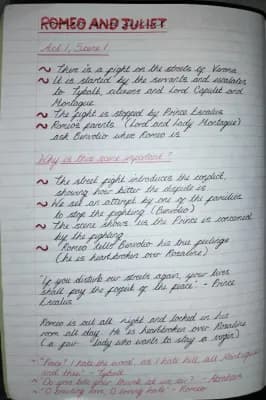 ROMEO AND JULIET
Act 1, Scene 1
~ There is a fight on the streets of Verona
~ It is started by the servants and escalates
to Tybalt, citizens and Lord Capulet and
Montague
~ The fight is stopped by Prince Escalus
~ Romeos parents (Lord and Lady Montague)
ask Benvolio where Romeo is
Why is this scene important?
~ The street fight introduces the conflict,
showing how bitter the dispute is
~ We see an attempt by one of the families
to stop the fighting (Benvolio)
~ The scene shows us the Prince is concerned
by the fighting
~ Romeo tells Benvolio his true feelings
(he is heartbroken over Rosaline)
"If you disturb our streets again, your lives
shall pay the forfeit of the peace" - Prince
Escalus
Romeo is out all night and locked in his
room all day. He is heartbroken over Rosaline
(a fair lady who wants to stay a virgin)
~ "Peace? I hate the word, as I hate hell, all Montagues
and thee" - Tybalt
~ "Do you bite your thumb at us, sir?" - Abraham
~ "O brawling love, O loving hate" - Romeo